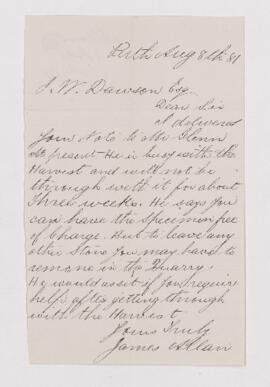 Perth Aug 8th 81
J. W. Dawson Esq.
Dear Sir
I delivered
Your Note to Mr Glenn
At present He is busy with the
Harvest and will not be
through with it for about
Three weeks. He says you
can have the Specimen free
of Charge. But to leave any
other Stone you may have to
remove in the Quarry.
He would asist if you require
help after getting through
with the Harvest
Yours Truly
James Allan